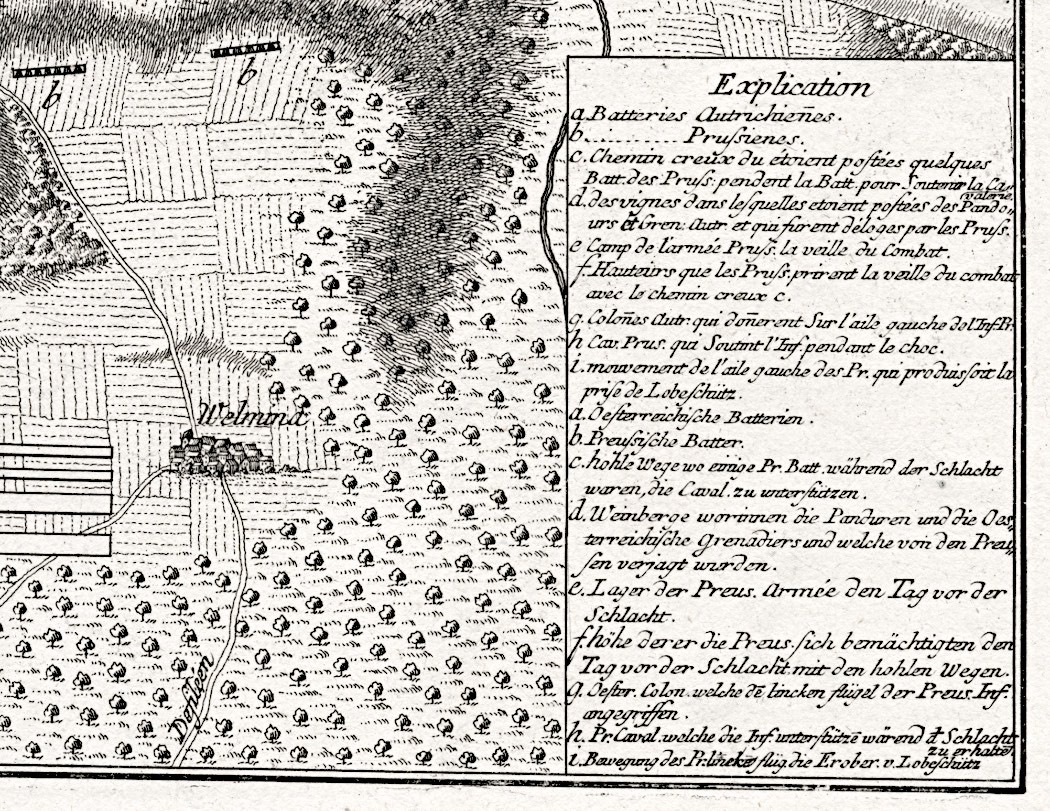 b
b
Welmina
Defileen
Explication
a. Batteries Autrichieñes.
b. ............ Prußienes.
c. Chemin creux du étoient postées quelques
Batt. des Pruß. pendent la Batt. pour Soutenir la Ca„
valerie.
d. des vignes dans lesquelles etoient postées des Pando„
urs et Gren. Autr. et qui furent déloges par les Pruß.
e Camp de l'armée Pruß. la veille du Combat.
f. Hauteurs que les Pruß. prirent la veille du combat
avec le chemin creux c.
g. Coloñes Autr. qui doñerent Sur l'aile gauche de l'Inf. Pr.
h Cav. Prus. qui Soutint l'Inf. pendant le choc.
i. mouvement de l'aile gauche des Pr. qui produissoit la
prise de Lobeschütz.
a. Oesterreichische Batterien.
b. Preusische Batter.
c. hohle Wege wo einige Pr. Batt. während der Schlacht
waren, die Caval. zu unterstützen.
d. Weinberge worinnen die Panduren und die Oes„
terreichische Grenadiers und welche von den Preu„
sen verjagt wurden.
e. Lager der Preus. Armée den Tag vor der
Schlacht.
f. höhe derer die Preus. sich bemächtigten den
Tag vor der Schlacht mit den hohlen Wegen.
g. Oester. Colon. welche dē lincken flügel der Preus. Inf.
angegriffen.
h. Pr. Caval. welche die Inf. unterstützē wärend d. Schlacht
zu erhaltē
i. Bewegung des Pr. linckē flüg. die Erober. v. Lobeschütz